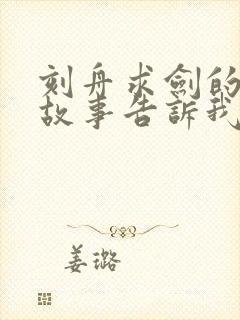 刻舟求劍的
故事告訴我
姜璐